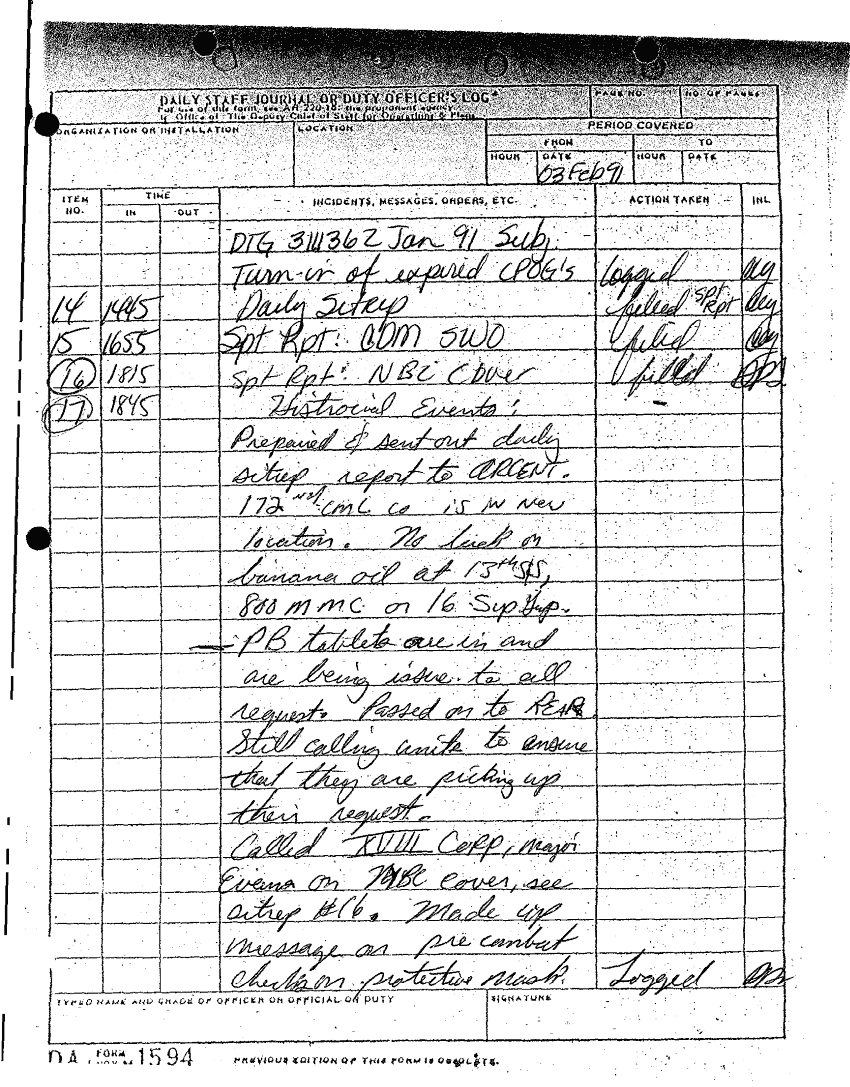 DAILY STAFF JOURNAL OR DUTY OFFICER'S LOG
PAGE NO.
NO. OF PAGES
For use of this form, see AR 220-15; the proponent agency
is Office of The Deputy Chief of Staff for Operations & Plans
ORGANIZATION OR INSTALLATION
LOCATION
PERIOD COVERED
FROM
TO
HOUR
DATE
HOUR
DATE
03 Feb 91
ITEM NO.
TIME
IN
OUT
INCIDENTS, MESSAGES, ORDERS, ETC.
ACTION TAKEN
INL
DTG 311136Z Jan 91 Subj.
Turn-in of expired CPOG's logged
14 1445 Daily Sitrep filed Spt Rpt
15 1655 Spt Rpt: CDM SWO filed
16 1815 Spt Rpt: NBC Cover filled
17 1845 Histrocial Events:
Prepaired & sent out daily
sitrep report to ARCENT.
172 nd CML Co is in new
location. No luck on
banana oil at 13th
800 MMC or 16 Sup Grp.
— PB tablets are in and
are being issue to all
request. Passed on to REAR.
Still calling units to ensure
that they are picking up
their request.
Called XVIII Corp, major
Evans on NBC cover, see
sitrep #16. Made up
message on pre combat
checks on protective mask. Logged
TYPED NAME AND GRADE OF OFFICER OR OFFICIAL ON DUTY
SIGNATURE
DA FORM 1594
PREVIOUS EDITION OF THIS FORM IS OBSOLETE.